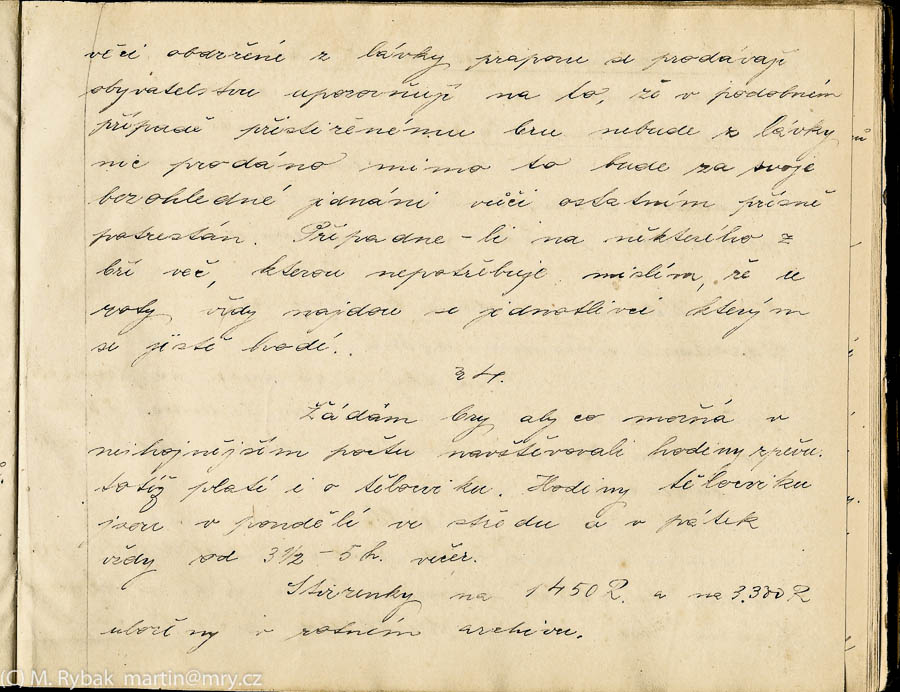 věci obdržené z lávky praporu se prodávají
obyvatelstvu upororňuji na to, že v podobném
případě přistiženému bru nebude z lávky
nic prodáno mimo to bude za svoje
bezohledné jednáni vůči ostatním přísně
potrestán. Případne-li na některého z
bří več, kterou nepotřebuje mislím, že u
roty vždy najdou se jednotlivci kterým
se jistě hodí.
24.
Žádám bry aby co možná v
nejhojnějším počtu navštěvovali hodiny zpěvu.
totéž platí i o tělocviku. Hodiny tělocviku
jsou v pondělí ve středu a v pátek
vždy od 3½-5 h. večer.
Stvrzenky na 1450 R. a na 3.300 R
uloženy v rotném archivu.
(C) M. Rybak martin@mry.cz